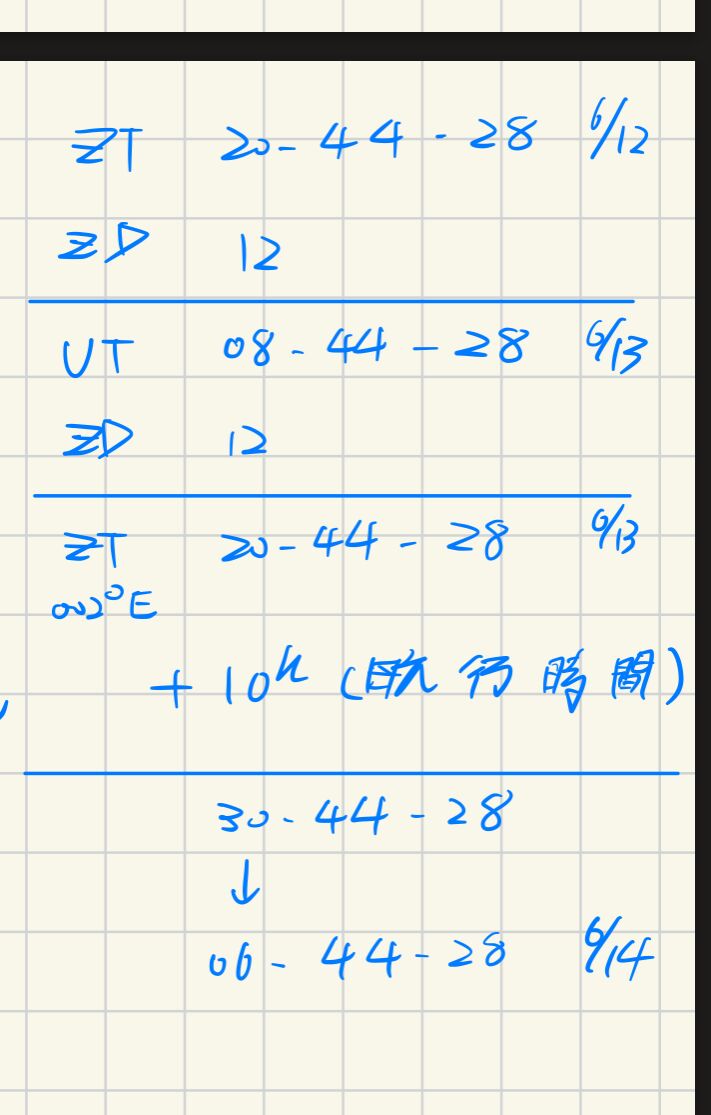 ZT 20-44-28 6/12
ZD 12
UT 08-44-28 6/13
ZD 12
ZT 20-44-28 6/13
002°E
+10h (航行時間)
30-44-28
↓
06-44-28 6/14